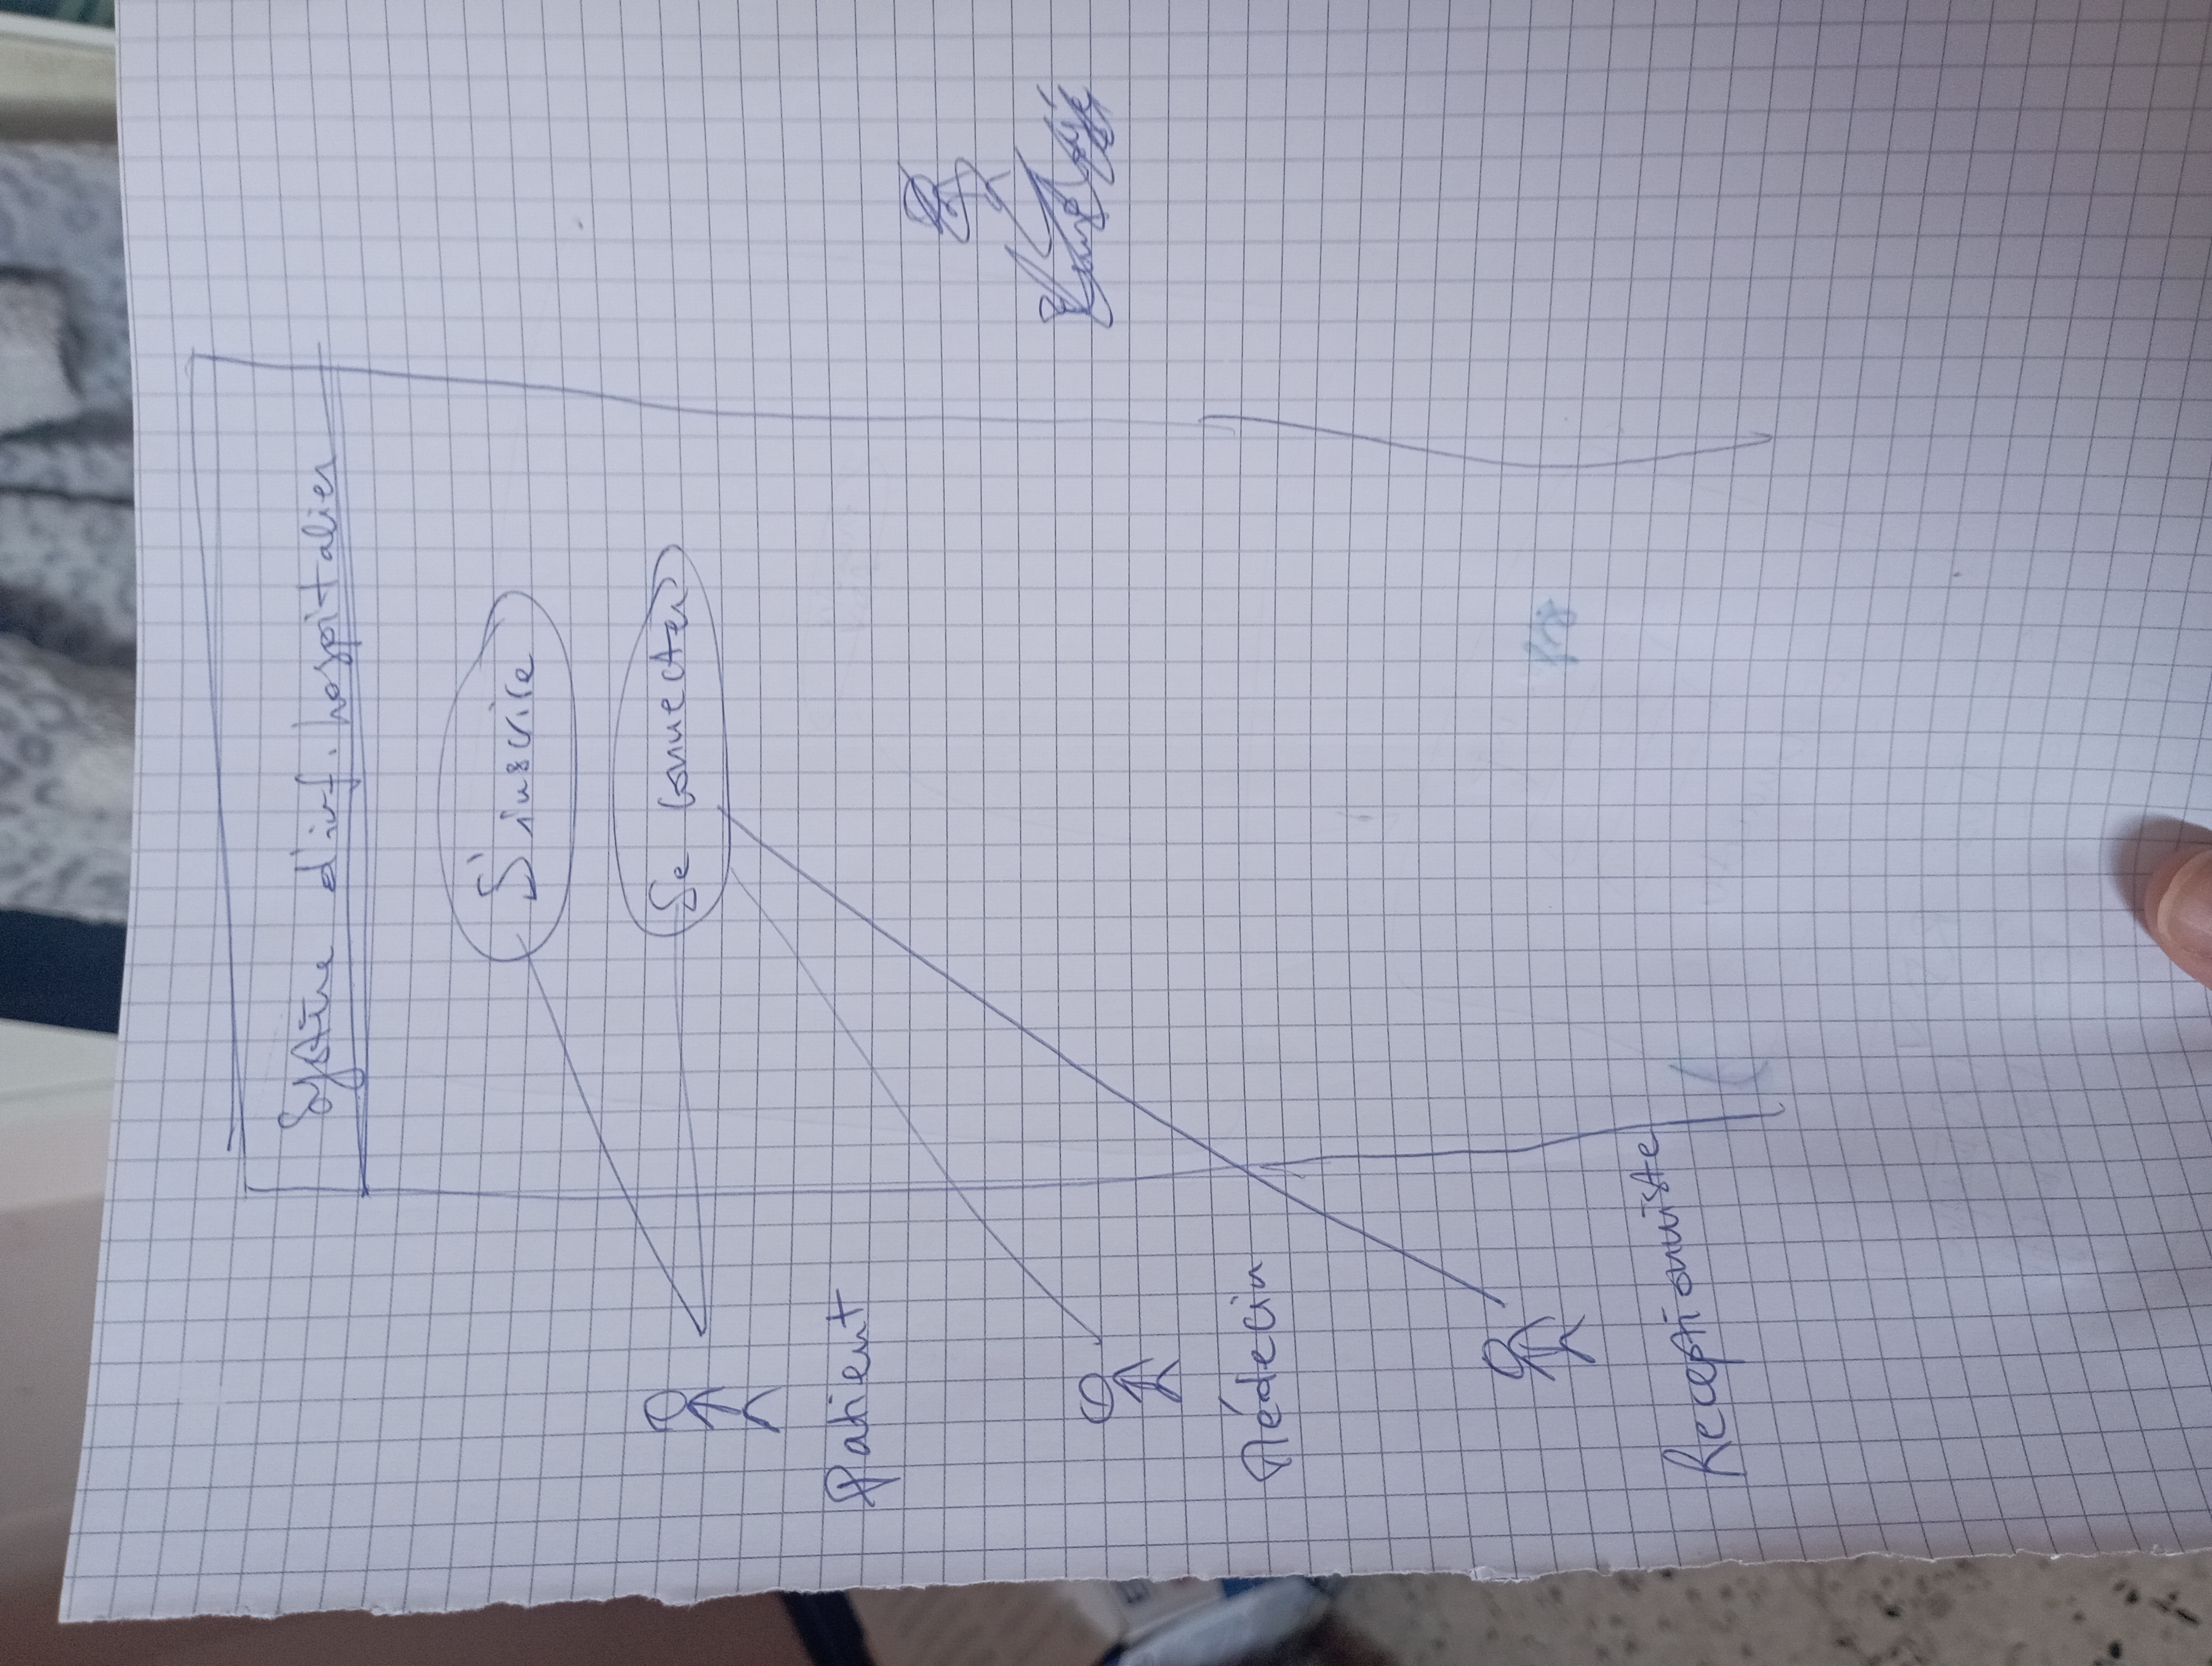 Système d'inf. hospitalier
S'inscrire
Se connecter
Patient
Médecin
Receptionniste